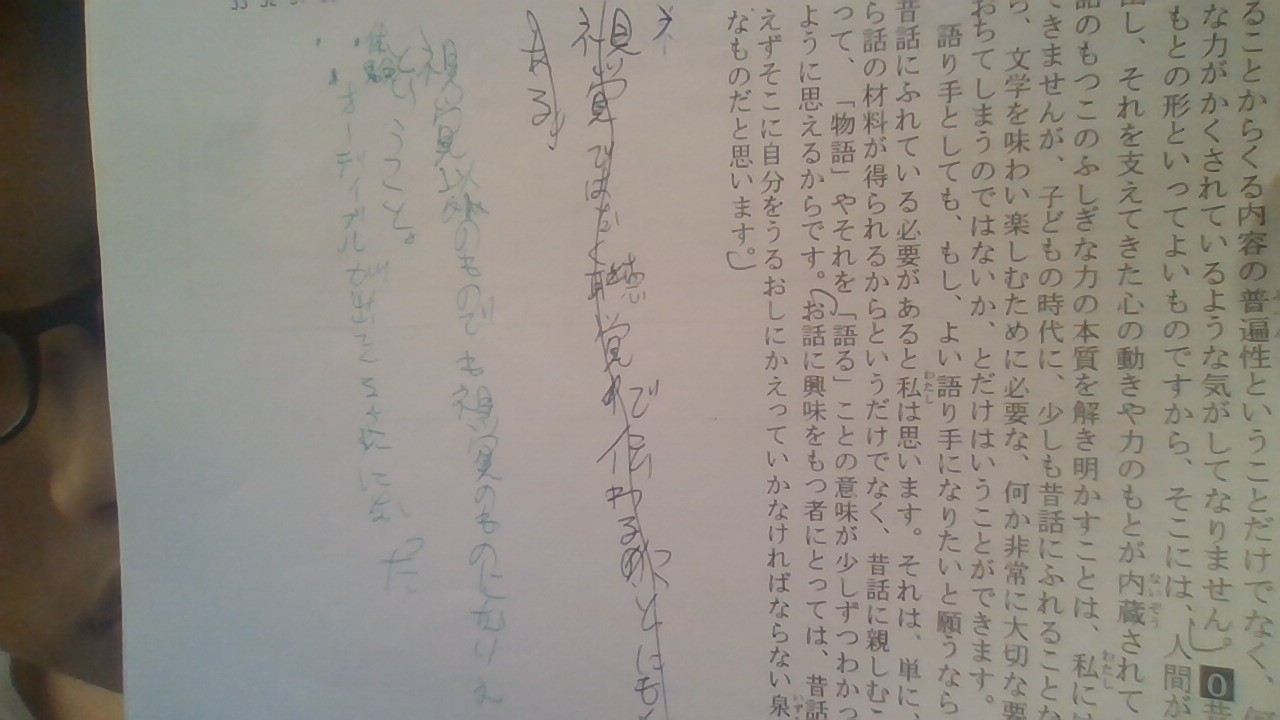 ることからくる内容の普遍性ということだけでなく、
な力がかくされているような気がしてなりません。 0 昔
もとの形といってよいものですから、そこには、人間が
出し、それを支えてきた心の動きや力のもとが内蔵されて
話のもつこのふしぎな力の本質を解き明かすことは、私には
できませんが、子どもの時代に、少しも昔話にふれることな
ら、文学を味わい楽しむために必要な、何か非常に大切な要
おちてしまうのではないか、とだけはいうことができます。
語り手としても、もし、よい語り手になりたいと願うなら
昔話にふれている必要があると私は思います。それは、単に、
ら話の材料が得られるからというだけでなく、昔話に親しむこ
って、「物語」やそれを「語る」ことの意味が少しずつわかっ
ように思えるからです。お話に興味をもつ者にとっては、昔話
えずそこに自分をうるおしにかえっていかなければならない泉
なものだと思います。
視覚ではなく聴覚で伝わるのがとにも
ある。
視覚以外のものでも視覚のものになりえ
ということ。
体験
・オーディブルが出てきたになった